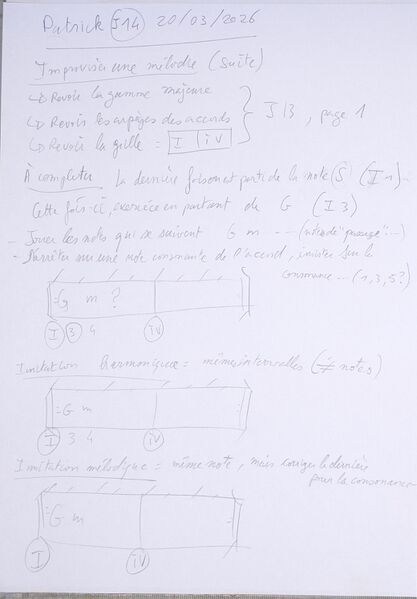 Patrick J14 20/03/2026
Improviser une mélodie (suite)
↳ Revoir la gamme majeure
↳ Revoir les arpèges des accords
↳ Revoir la grille = I | iv
J13, page 1
À compléter La dernière fois on est parti de la note S (I1)
Cette fois-ci, exercice en partant du G (I3)
- Jouer les notes qui se suivent G m ... (notes de "passage"...)
- S'arrêter sur une note consonante de l'accord, insister sur la
consonance... (1, 3, 5?)
G m ?
I 3 4 iv
Imitation harmonique = mêmes intervalles (≠ notes)
= G m
I 3 4 iv
Imitation mélodique = même note, mais corriger la dernière
pour la consonance
= G m
I iv